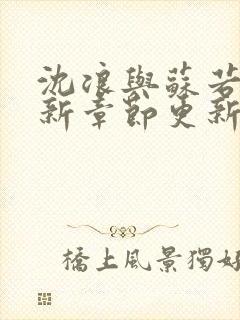 沈浪與蘇若
新章節更新
橋上風景獨好